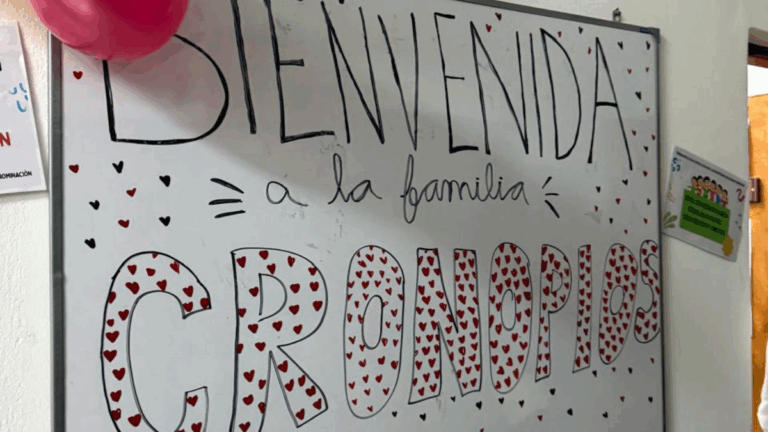 BIENVENIDA
a la familia
CRONOPIOS